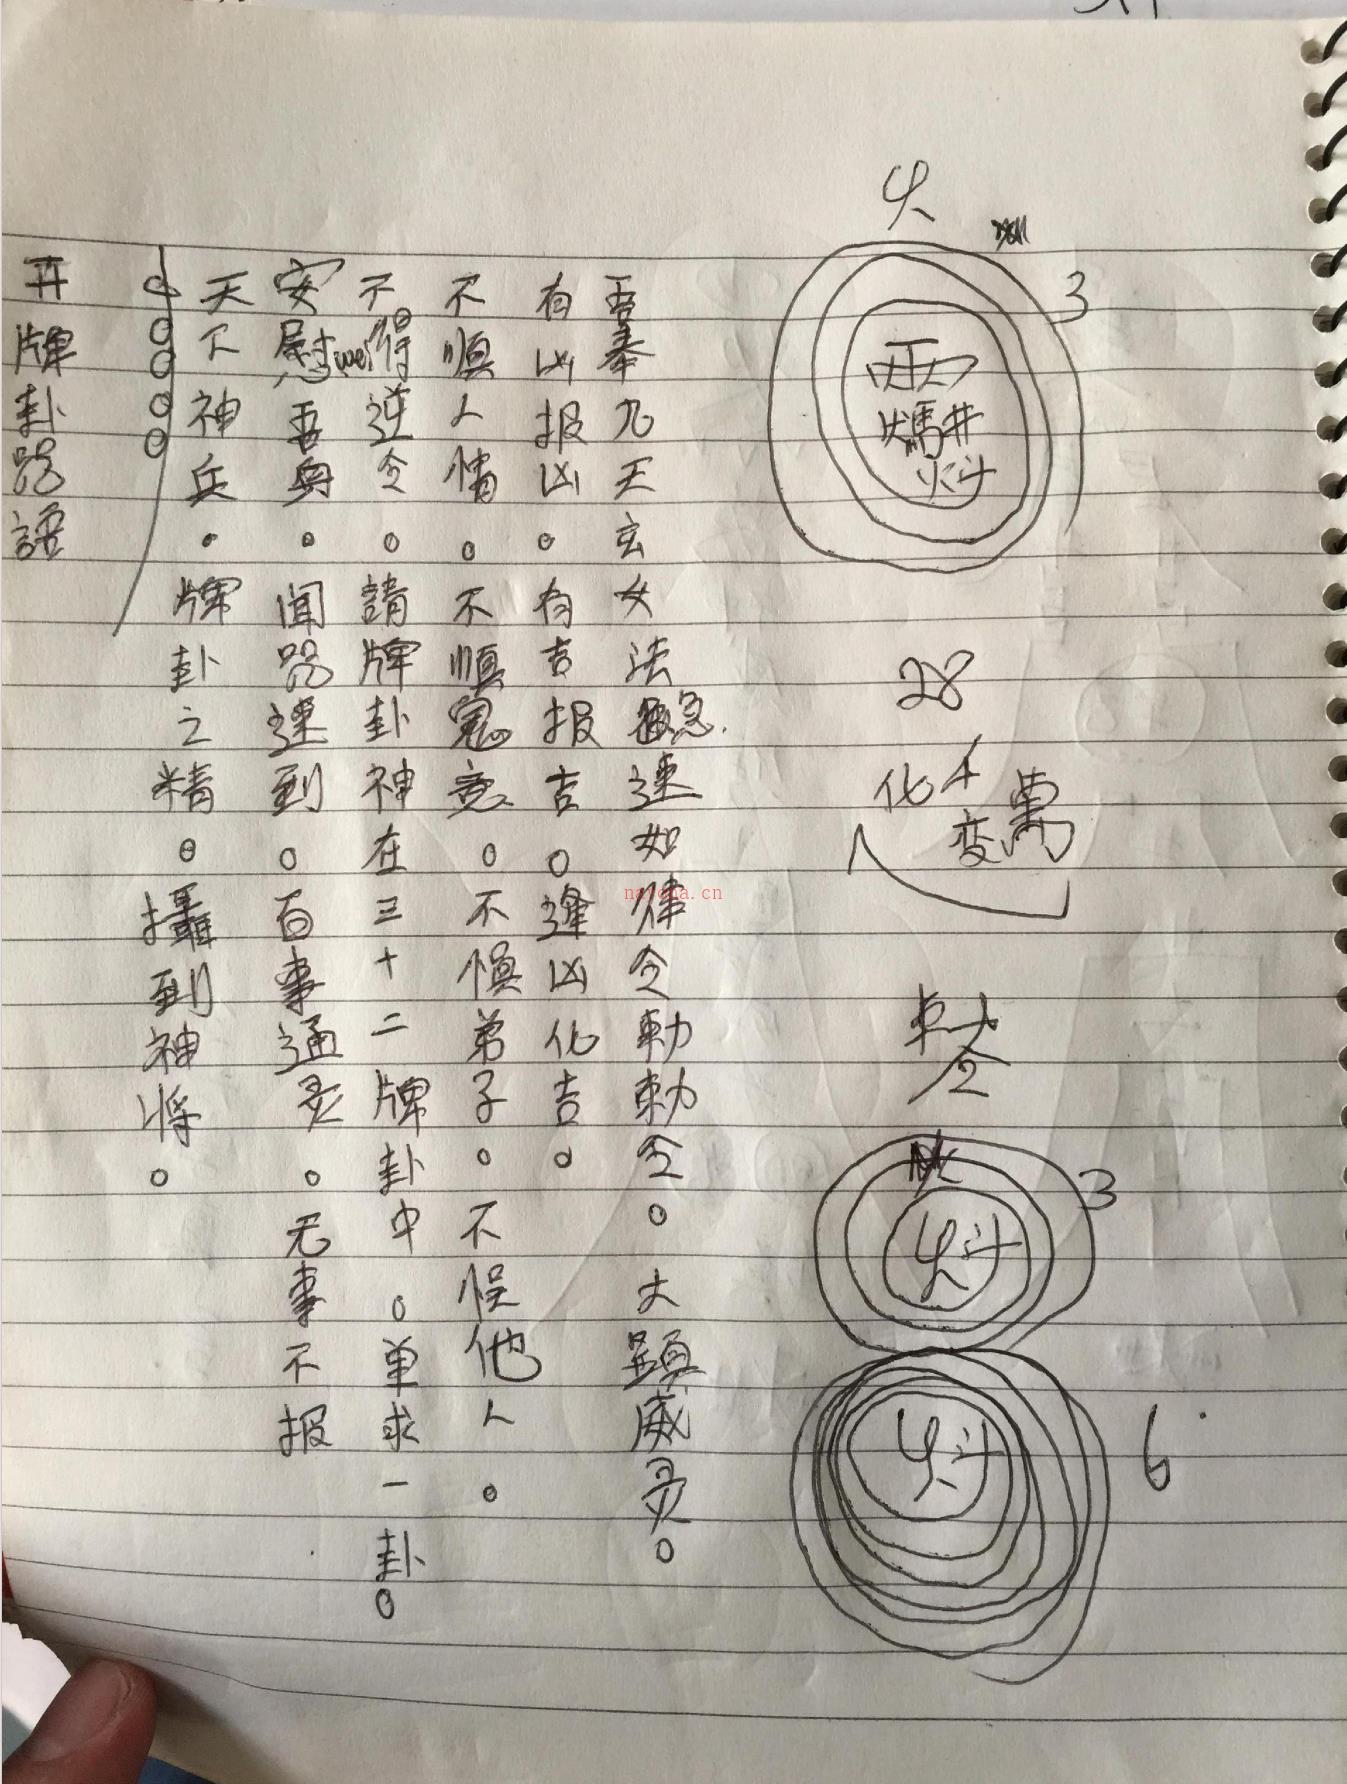 开牌卦咒語
天下神兵。牌卦之精。攝到神将。
安慰wei吾與。闻咒速到。百事通灵。无事不报
不得逆令。請牌卦神在三十二牌卦中。单求一卦。
不順人情。不順冤意。不慎弟子。不悮他人。
有凶报凶。有吉报吉。逢凶化吉。
吾奉九天玄女法急速如律令勅勅令。大顕威灵。
3
28
化千
变萬
令
3
6
nayona.cn